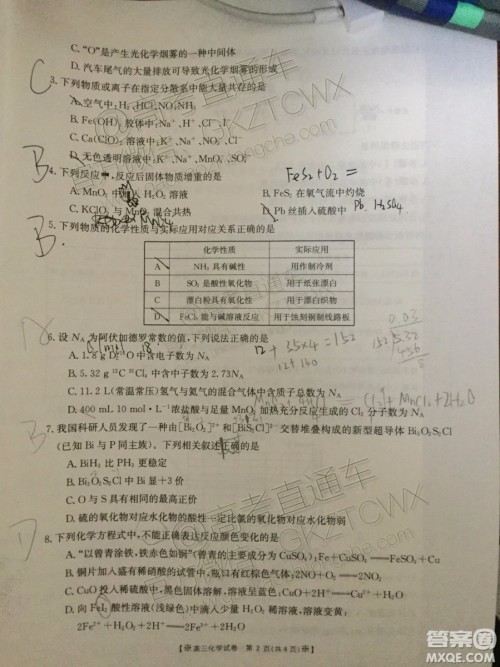 C. “O”是产生光化学烟雾的一种中间体
D. 汽车尾气的大量排放可导致光化学烟雾的形成
C
3. 下列物质或离子在指定分散系中能大量共存的是
A. 空气中:H₂、HCl、NO、NH₃
B. Fe(OH)₃胶体中:Na⁺、H⁺、Cl⁻、I⁻
C. Ca(ClO)₂溶液中:K⁺、Na⁺、NO₃⁻、Cl⁻
D. 无色透明溶液中:K⁺、Na⁺、MnO₄⁻、SO₄²⁻
B
4. 下列反应中,反应后固体物质增重的是
FeS₂+O₂=
A. MnO₂ 加入 H₂O₂ 溶液
B. FeS₂ 在氧气流中灼烧
C. KClO₃ 与 MnO₂ 混合共热
D. Pb丝插入硫酸中
Pb H₂SO₄
B
5. 下列物质的化学性质与实际应用对应关系正确的是
化学性质 实际应用
A NH₃ 具有碱性 用作制冷剂
B SO₂ 是酸性氧化物 用于纸张漂白
C 漂白粉具有氧化性 用于漂白织物
D FeCl₃ 能与碱溶液反应 用于蚀刻铜制线路板
6. 设 Nᴀ 为阿伏加德罗常数的值,下列说法正确的是
12+35×4=152
12+140
A. 1.8 g D₂O 中含电子数为 Nᴀ
B. 5.32 g ¹²C ³⁵Cl₄ 中含中子数为 2.73Nᴀ
C. 11.2 L(常温常压)氢气与氦气的混合气体中含质子总数为 Nᴀ
D. 400 mL 10 mol·L⁻¹浓盐酸与足量 MnO₂ 加热充分反应生成的 Cl₂ 分子数为 Nᴀ
B
7. 我国科研人员发现了一种由[Bi₂O₂]²⁺和[BiS₂Cl]²⁻交替堆叠构成的新型超导体Bi₃O₂S₂Cl
(已知 Bi 与 P 同主族)。下列相关叙述正确的是
A. BiH₃ 比 PH₃ 更稳定
B. Bi₃O₂S₂Cl 中 Bi 显+3 价
C. O 与 S 具有相同的最高正价
D. 硫的氧化物对应水化物的酸性一定比氯的氧化物对应水化物弱
D
8. 下列化学方程式中,不能正确表达反应颜色变化的是
A. “以曾青涂铁,铁赤色如铜”(曾青的主要成分为 CuSO₄):Fe+CuSO₄══FeSO₄+Cu
B. 铜片加入盛有稀硝酸的试管中,瓶口有红棕色气体:2NO+O₂══2NO₂
C. CuO 投入稀硫酸中,黑色固体溶解,溶液呈蓝色:CuO+2H⁺══Cu²⁺+H₂O
D. 向 FeI₂ 酸性溶液(浅绿色)中滴入少量 H₂O₂ 稀溶液,溶液变黄:
2Fe²⁺+H₂O₂+2H⁺══2Fe³⁺+2H₂O
【高三化学试卷 第 2 页(共 8 页)】
高考直通车
GKZTCWX
答案圈
MXQE.COM